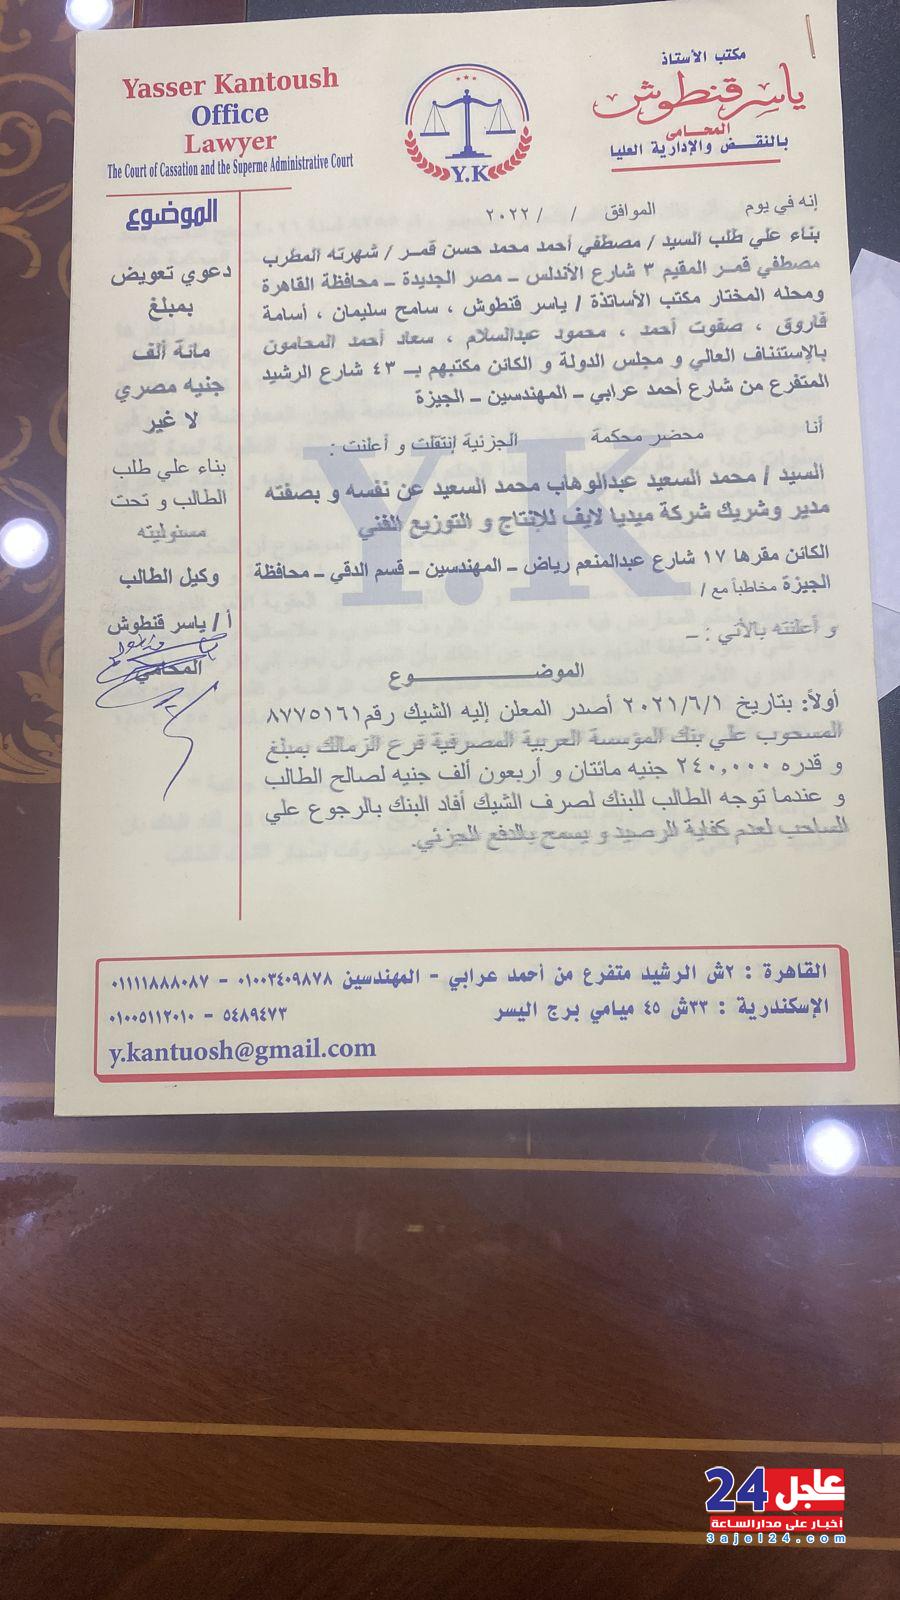 Yasser Kantoush
Office
Lawyer
The Court of Cassation and the Superme Administrative Court
Y.K
مكتب الأستاذ
ياسر قنطوش
المحامى
بالنقض والإدارية العليا
الموضوع
دعوي تعويض
بمبلغ
مائة ألف
جنيه مصري
لا غير
بناء علي طلب
الطالب و تحت
مسئوليته
وكيل الطالب
أ / ياسر قنطوش
المحامي
إنه في يوم الموافق / / ٢٠٢٢
بناء علي طلب السيد / مصطفي أحمد محمد حسن قمر / شهرته المطرب
مصطفي قمر المقيم ٣ شارع الأندلس – مصر الجديدة – محافظة القاهرة
ومحله المختار مكتب الأساتذة / ياسر قنطوش ، سامح سليمان ، أسامة
فاروق ، صفوت أحمد ، محمود عبدالسلام ، سعاد أحمد المحامون
بالإستئناف العالي و مجلس الدولة و الكائن مكتبهم بـ ٤٣ شارع الرشيد
المتفرع من شارع أحمد عرابي – المهندسين – الجيزة
أنا محضر محكمة الجزئية إنتقلت و أعلنت :
السيد / محمد السعيد عبدالوهاب محمد السعيد عن نفسه و بصفته
مدير وشريك شركة ميديا لايف للإنتاج و التوزيع الفني
الكائن مقرها ١٧ شارع عبدالمنعم رياض – المهندسين – قسم الدقي – محافظة
الجيزة مخاطباً مع /
و أعلنته بالأتي : –
الموضـــــــــــوع
أولاً: بتاريخ ٢٠٢١/٦/١ أصدر المعلن إليه الشيك رقم ٨٧٧٥١٦١
المسحوب علي بنك المؤسسة العربية المصرفية فرع الزمالك بمبلغ
و قدره ٢٤٠,٠٠٠ جنيه مائتان و أربعون ألف جنيه لصالح الطالب
و عندما توجه الطالب للبنك لصرف الشيك أفاد البنك بالرجوع علي
الساحب لعدم كفاية الرصيد و يسمح بالدفع الجزئي.
Y.K
القاهرة : ٢ش الرشيد متفرع من أحمد عرابي - المهندسين ٠١٠٠٣٤٠٩٨٧٨ - ٠١١١١٨٨٨٠٨٧
الإسكندرية : ٣٣ش ٤٥ ميامي برج اليسر ٥٤٨٩٤٧٣ - ٠١٠٠٥١١٢٠١٠
y.kantuosh@gmail.com
عاجل 24
أخبار على مدار الساعة
3ajel24.com